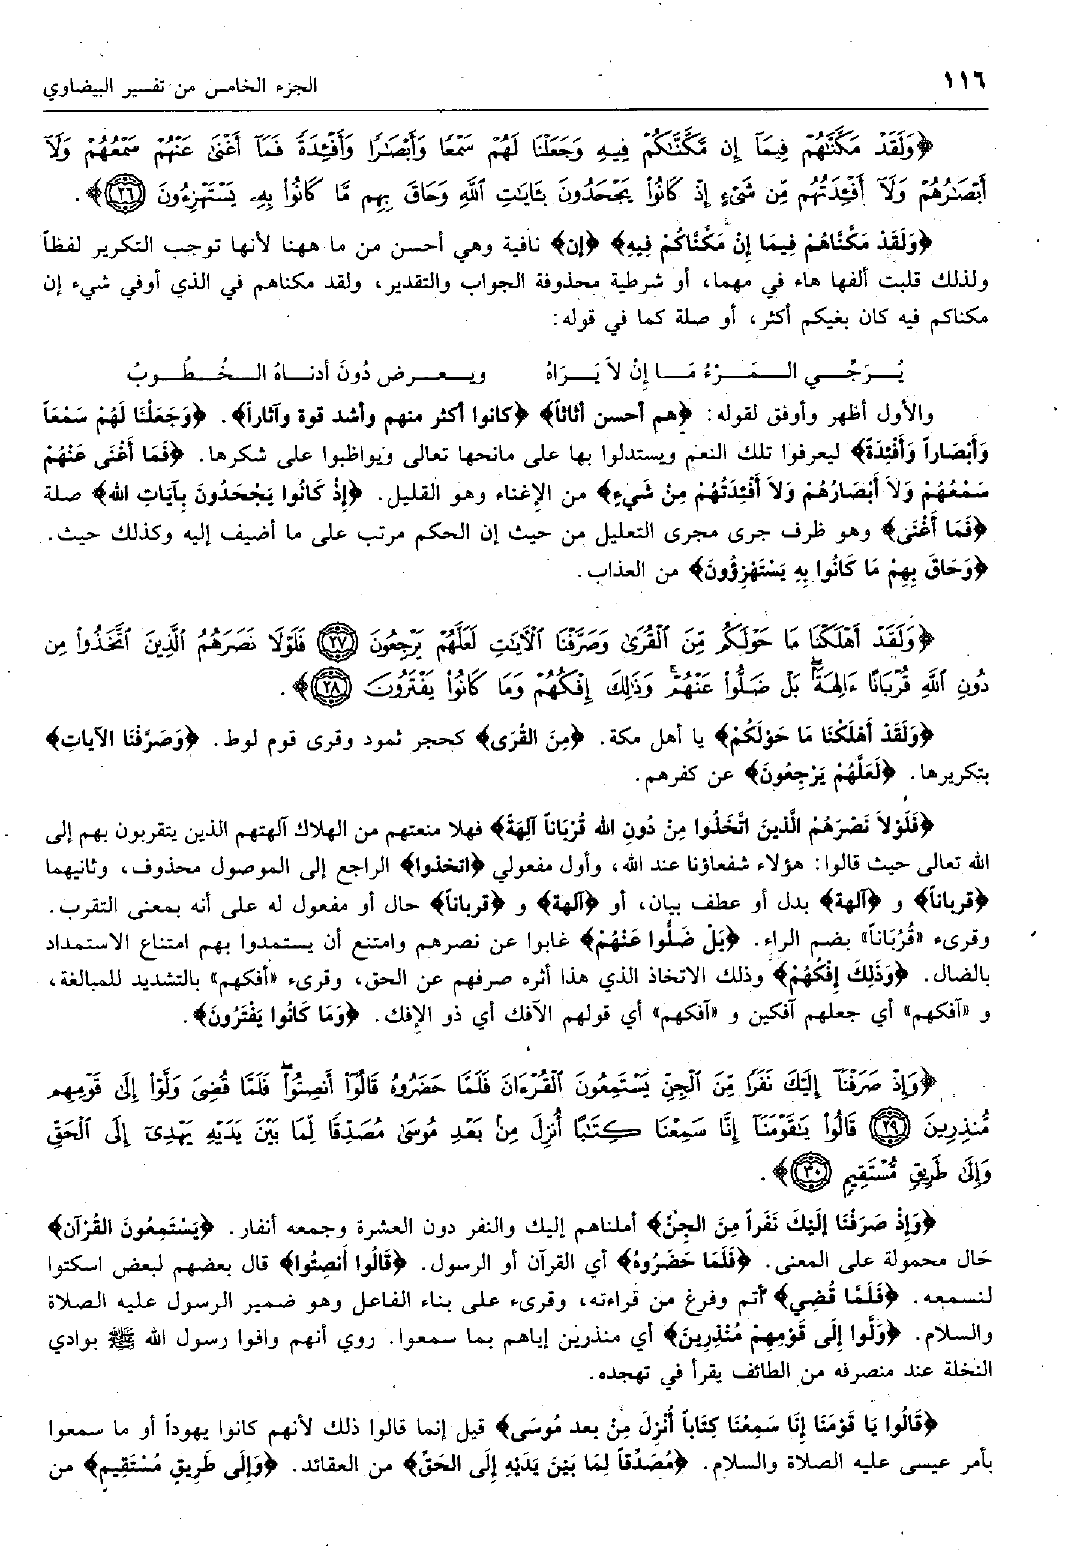 ١١٦
الجزء الخامس من تفسير البيضاوي
﴿وَلَقَدْ مَكَّنَّٰهُمْ فِيمَآ إِن مَّكَّنَّٰكُمْ فِيهِ وَجَعَلْنَا لَهُمْ سَمْعًا وَأَبْصَٰرًا وَأَفْـِٔدَةً فَمَآ أَغْنَىٰ عَنْهُمْ سَمْعُهُمْ وَلَآ
أَبْصَٰرُهُمْ وَلَآ أَفْـِٔدَتُهُم مِّن شَىْءٍ إِذْ كَانُوا۟ يَجْحَدُونَ بِـَٔايَٰتِ ٱللَّهِ وَحَاقَ بِهِم مَّا كَانُوا۟ بِهِۦ يَسْتَهْزِءُونَ ﴿٢٦﴾﴾.
﴿وَلَقَدْ مَكَّنَّاهُمْ فِيمَا إِنْ مَكَّنَّاكُمْ فِيهِ﴾ ﴿إن﴾ نافية وهي أحسن من ما ههنا لأنها توجب التكرير لفظاً
ولذلك قلبت ألفها هاء في مهما، أو شرطية محذوفة الجواب والتقدير، ولقد مكناهم في الذي أوفي شيء إن
مكناكم فيه كان بغيكم أكثر، أو صلة كما في قوله:
يُـرَجِّـي الـمَـرْءُ مَـا إِنْ لاَ يَـرَاهُ ويـعـرض دُونَ أدنـاهُ الـخُـطُـوبُ
والأول أظهر وأوفق لقوله: ﴿هم أحسن أثاثاً﴾ ﴿كانوا أكثر منهم وأشد قوة وآثاراً﴾. ﴿وَجَعَلْنَا لَهُمْ سَمْعَاً
وَأَبْصَاراً وَأَفْئِدَةً﴾ ليعرفوا تلك النعم ويستدلوا بها على مانحها تعالى ويواظبوا على شكرها. ﴿فَمَا أَغْنَى عَنْهُمْ
سَمْعُهُمْ وَلاَ أَبْصَارُهُمْ وَلاَ أَفْئِدَتُهُمْ مِنْ شَيءٍ﴾ من الإِغناء وهو القليل. ﴿إِذْ كَانُوا يَجْحَدُونَ بِآيَاتِ الله﴾ صلة
﴿فَمَا أَغْنَى﴾ وهو ظرف جرى مجرى التعليل من حيث إن الحكم مرتب على ما أضيف إليه وكذلك حيث.
﴿وَحَاقَ بِهِمْ مَا كَانُوا بِهِ يَسْتَهْزِؤُونَ﴾ من العذاب.
﴿وَلَقَدْ أَهْلَكْنَا مَا حَوْلَكُم مِّنَ ٱلْقُرَىٰ وَصَرَّفْنَا ٱلْـَٔايَٰتِ لَعَلَّهُمْ يَرْجِعُونَ ﴿٢٧﴾ فَلَوْلَا نَصَرَهُمُ ٱلَّذِينَ ٱتَّخَذُوا۟ مِن
دُونِ ٱللَّهِ قُرْبَانًا ءَالِهَةًۢ بَلْ ضَلُّوا۟ عَنْهُمْ وَذَٰلِكَ إِفْكُهُمْ وَمَا كَانُوا۟ يَفْتَرُونَ ﴿٢٨﴾﴾.
﴿وَلَقَدْ أَهْلَكْنَا مَا حَوْلَكُمْ﴾ يا أهل مكة. ﴿مِنَ القُرَى﴾ كحجر ثمود وقرى قوم لوط. ﴿وَصَرَّفْنَا الآيَاتِ﴾
بتكريرها. ﴿لَعَلَّهُمْ يَرْجِعُونَ﴾ عن كفرهم.
﴿فَلَوْلاَ نَصَرَهُمْ الَّذِينَ اتَّخَذُوا مِنْ دُونِ الله قُرْبَاناً آلِهَةً﴾ فهلا منعتهم من الهلاك آلهتهم الذين يتقربون بهم إلى
الله تعالى حيث قالوا: هؤلاء شفعاؤنا عند الله، وأول مفعولي ﴿اتخذوا﴾ الراجع إلى الموصول محذوف، وثانيهما
﴿قرباناً﴾ و ﴿آلهة﴾ بدل أو عطف بيان، أو ﴿آلهة﴾ و ﴿قرباناً﴾ حال أو مفعول له على أنه بمعنى التقرب.
وقرىء «قُرُبَاناً» بضم الراء. ﴿بَلْ ضَلُّوا عَنْهُمْ﴾ غابوا عن نصرهم وامتنع أن يستمدوا بهم امتناع الاستمداد
بالضال. ﴿وَذَلِكَ إِفْكُهُمْ﴾ وذلك الاتخاذ الذي هذا أثره صرفهم عن الحق، وقرىء «أفكهم» بالتشديد للمبالغة،
و «آفكهم» أي جعلهم آفكين و «آفكهم» أي قولهم الآفك أي ذو الإِفك. ﴿وَمَا كَانُوا يَفْتَرُونَ﴾.
﴿وَإِذْ صَرَفْنَآ إِلَيْكَ نَفَرًا مِّنَ ٱلْجِنِّ يَسْتَمِعُونَ ٱلْقُرْءَانَ فَلَمَّا حَضَرُوهُ قَالُوٓا۟ أَنصِتُوا۟ فَلَمَّا قُضِىَ وَلَّوْا۟ إِلَىٰ قَوْمِهِم
مُّنذِرِينَ ﴿٢٩﴾ قَالُوا۟ يَٰقَوْمَنَآ إِنَّا سَمِعْنَا كِتَٰبًا أُنزِلَ مِنۢ بَعْدِ مُوسَىٰ مُصَدِّقًا لِّمَا بَيْنَ يَدَيْهِ يَهْدِىٓ إِلَى ٱلْحَقِّ
وَإِلَىٰ طَرِيقٍ مُّسْتَقِيمٍ ﴿٣٠﴾﴾.
﴿وَإِذْ صَرَفْنَا إِلَيْكَ نَفَراً مِنَ الجِنِّ﴾ أملناهم إليك والنفر دون العشرة وجمعه أنفار. ﴿يَسْتَمِعُونَ القُرْآنَ﴾
حال محمولة على المعنى. ﴿فَلَمَّا حَضَرُوهُ﴾ أي القرآن أو الرسول. ﴿قَالُوا أَنصِتُوا﴾ قال بعضهم لبعض اسكتوا
لنسمعه. ﴿فَلَمَّا قُضِي﴾ أتم وفرغ من قراءته، وقرىء على بناء الفاعل وهو ضمير الرسول عليه الصلاة
والسلام. ﴿وَلَّوا إِلَى قَوْمِهِمْ مُنْذِرِينَ﴾ أي منذرين إياهم بما سمعوا. روي أنهم وافوا رسول الله ﷺ بوادي
النخلة عند منصرفه من الطائف يقرأ في تهجده.
﴿قَالُوا يَا قَوْمَنَا إِنَا سَمِعْنَا كِتَاباً أُنْزِلَ مِنْ بعد مُوسَى﴾ قيل إنما قالوا ذلك لأنهم كانوا يهوداً أو ما سمعوا
بأمر عيسى عليه الصلاة والسلام. ﴿مُصَدِّقاً لِمَا بَيْنَ يَدَيْهِ إِلَى الحَقِّ﴾ من العقائد. ﴿وَإِلَى طَرِيقٍ مُسْتَقِيمٍ﴾ من